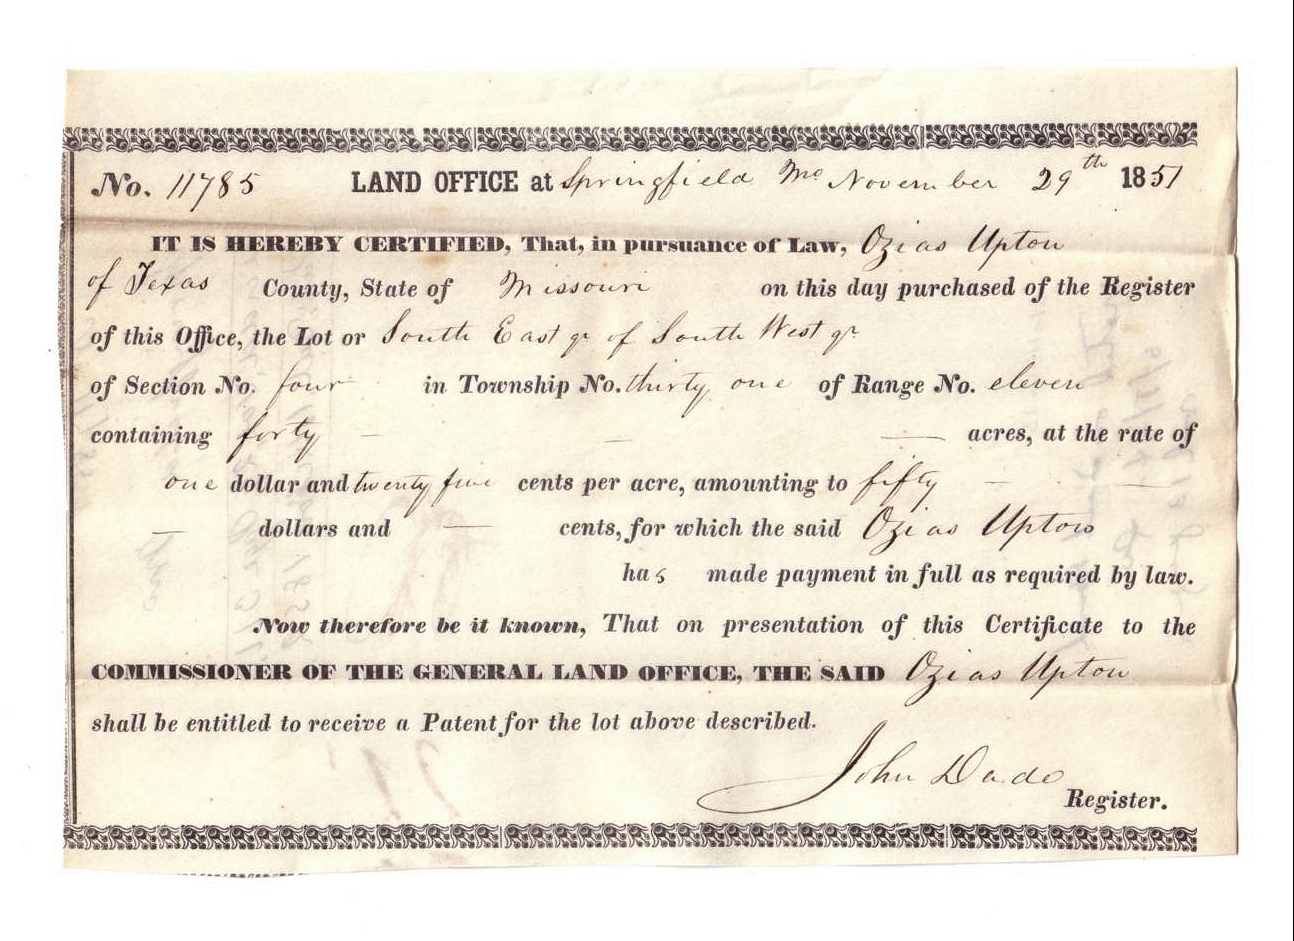 No. 11785 LAND OFFICE at Springfield Mo November 29th 1851
IT IS HEREBY CERTIFIED, That, in pursuance of Law, Ozias Upton
of Texas County, State of Missouri on this day purchased of the Register
of this Office, the Lot or South East qr of South West qr
of Section No. four in Township No. thirty one of Range No. eleven
containing forty — — — acres, at the rate of
one dollar and twenty five cents per acre, amounting to fifty — —
— dollars and — cents, for which the said Ozias Upton
has made payment in full as required by law.
Now therefore be it known, That on presentation of this Certificate to the
COMMISSIONER OF THE GENERAL LAND OFFICE, THE SAID Ozias Upton
shall be entitled to receive a Patent for the lot above described.
John Dade
Register.